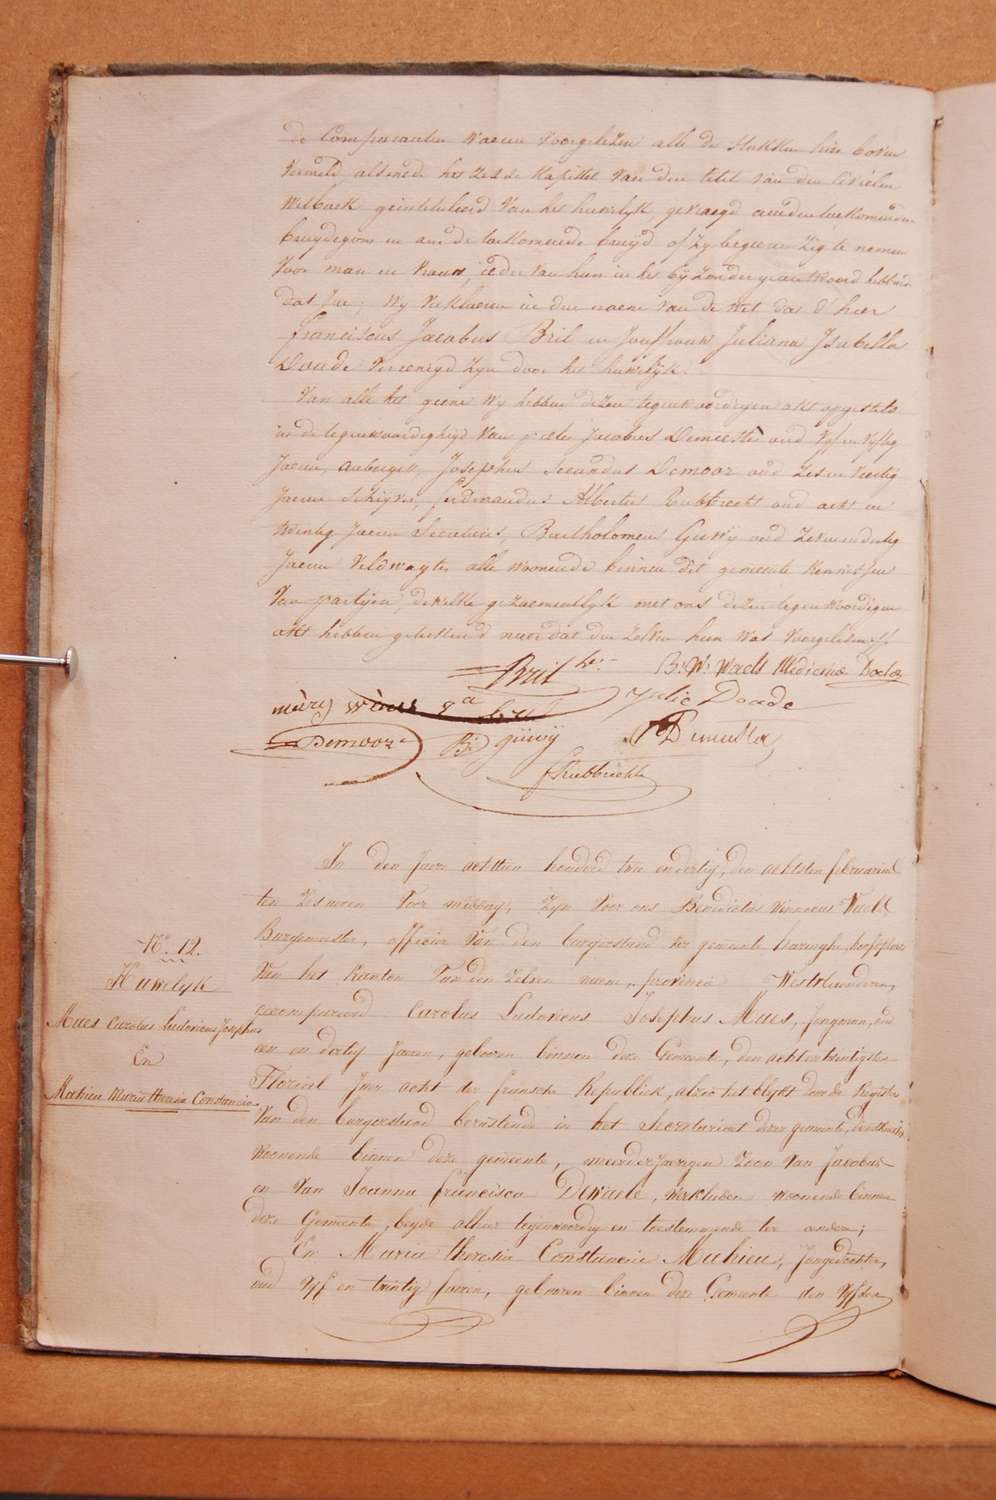 de Comparanten waeren voorgelezen alle de stukken hier boven
vermeld alsmede het zesde kapittel van den titel van den Civielen
Wetboek geintituleerd van het huwelyk, gevraegd aen den toekomenden
bruydegom en aen de toekomende bruyd of zy begeeren zig te nemen
voor man en vrauw, ieder van hun in het byzonder geantwoord hebbende
dat Jae; wy verklaeren in den naem van de wet dat d'heer
Franciscus Jacobus Bril en Jonkvrouw Juliana Isabella
Doude vereenigd zyn door het huwelyk.
Van alle het geene wy hebben dezen tegenwoordigen akt opgesteld
in de tegenwoordigheyd van pieter Jacobus Demeester oud vyf en vyftig
Jaeren, auberget, Josephus Secundus Demoor oud zes en veertig
Jaeren schryver, ferdinandus Albertus Rubbrecht oud acht en
twintig Jaeren Secretaris, Bartholomeus Guwy oud zeven en dertig
Jaeren veldwagter alle woonende binnen dit gemeente kennissen
van partyen, dewelke gezaementlyk met ons dezen tegenwoordigen
akt hebben geteekend naer dat den zelven hun was voorgelezen
Bril B: V: Waels Medicinæ Doctor
Julie Doude
Demoor BJ guwy PJ Demeester
f Rubbrecht
In den Jaere achttien honderd twee en dertig, den achtsten februarius
ten zes uren voor middag, zyn voor ons Benedictus Vinnocus Waels
Burgemeester, officier van den burgerstand der gemeente haringhe, hoofdplaets
van het kanton van den zelven naem, provincie Westvlaenderen,
gecompareerd Carolus Ludovicus Josephus Maes, Jongman, oud
een en dertig Jaeren, geboren binnen deze Gemeente, den acht en twintigsten
Floréal Jaer acht der fransche Republiek, alzoo het blykt door de Register
van den burgerstand berustende in het secretariaet dezer gemeente,
woonende binnen deze gemeente, meerderjaerigen zoon van Jacobus
en van Joanna francisca Dewaele, werklieden woonende binnen
deze Gemeente, beyde alhier tegenwoordig en toestemmende ter eender;
En Maria theresia Constancia Mahieu, Jongedochter,
oud vyf en twintig Jaeren, geboren binnen deze Gemeente den vyfden
N.º 12.
Huwelyk
Maes Carolus Ludovicus Josephus
En
Mahieu Maria theresia Constancia